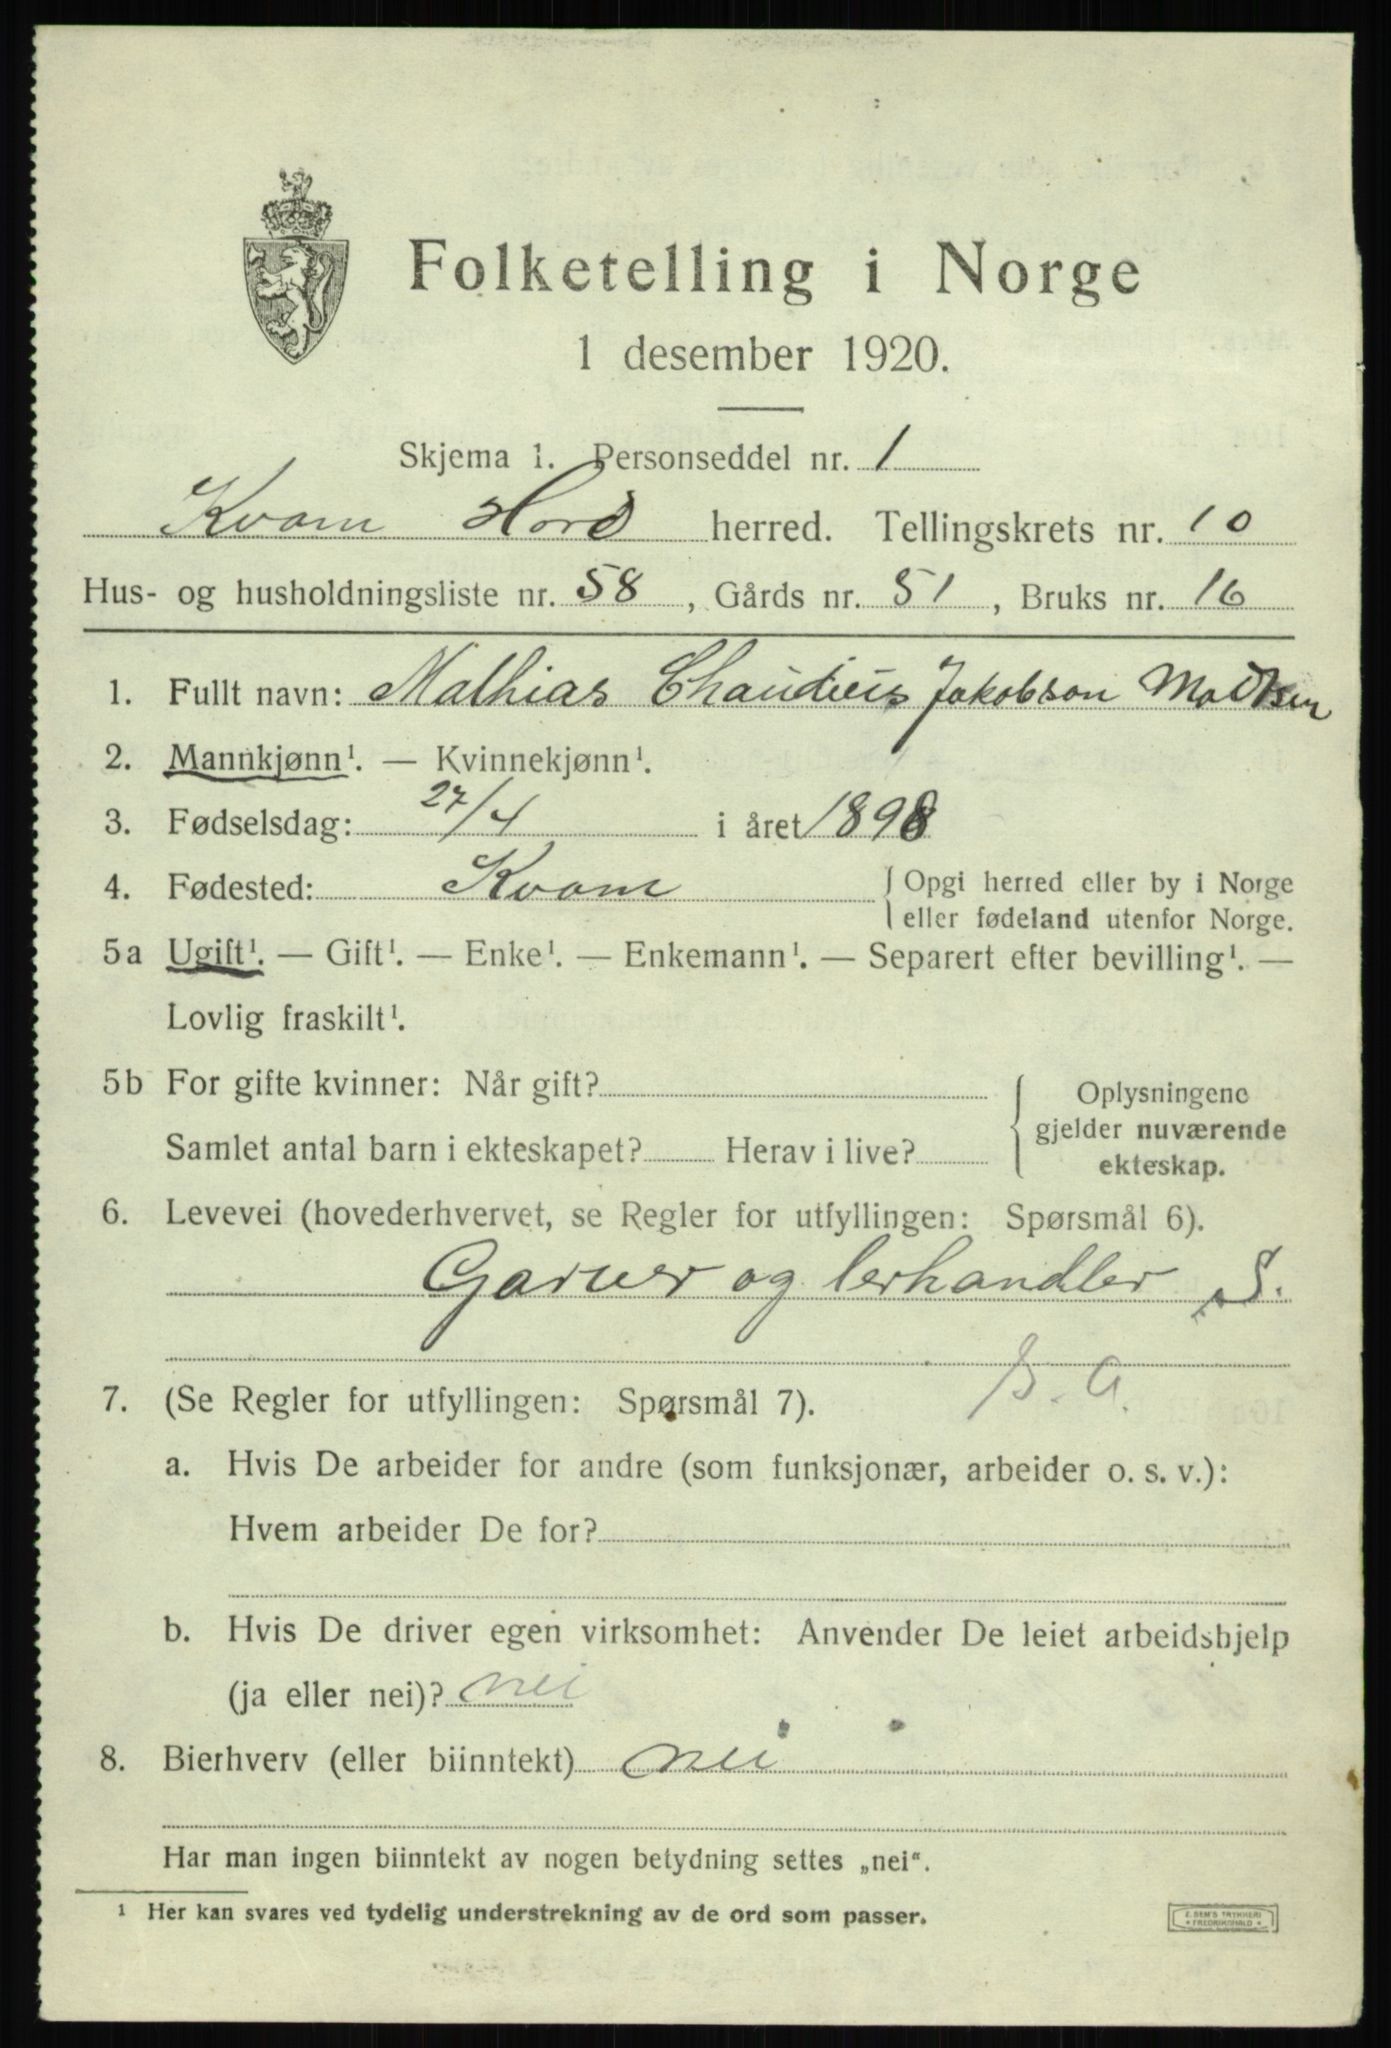 Folketelling i Norge
1 desember 1920.
Skjema 1. Personseddel nr. 1
Kvam Hord herred. Tellingskrets nr. 10
Hus- og husholdningsliste nr. 58, Gårds nr. 51, Bruks nr. 16
1. Fullt navn: Mathias Chaudius Jakobson Madsen
2. Mannkjønn¹. — Kvinnekjønn¹.
3. Fødselsdag: 27/4 i året 1898
4. Fødested: Kvam { Opgi herred eller by i Norge
eller fødeland utenfor Norge.
5a Ugift¹. — Gift¹. — Enke¹. — Enkemann¹. — Separert efter bevilling¹. —
Lovlig fraskilt¹.
5b For gifte kvinner: Når gift?
Samlet antal barn i ekteskapet? Herav i live?
{ Oplysningene
gjelder nuværende
ekteskap.
6. Levevei (hovederhvervet, se Regler for utfyllingen: Spørsmål 6).
Garver og lerhandler S.
7. (Se Regler for utfyllingen: Spørsmål 7).
a. Hvis De arbeider for andre (som funksjonær, arbeider o. s. v.):
Hvem arbeider De for?
b. Hvis De driver egen virksomhet: Anvender De leiet arbeidshjelp
(ja eller nei)? nei
8. Bierhverv (eller biinntekt) nei
Har man ingen biinntekt av nogen betydning settes „nei“.
¹ Her kan svares ved tydelig understrekning av de ord som passer.
E. SEM'S TRYKKERI
FREDRIKSHALD